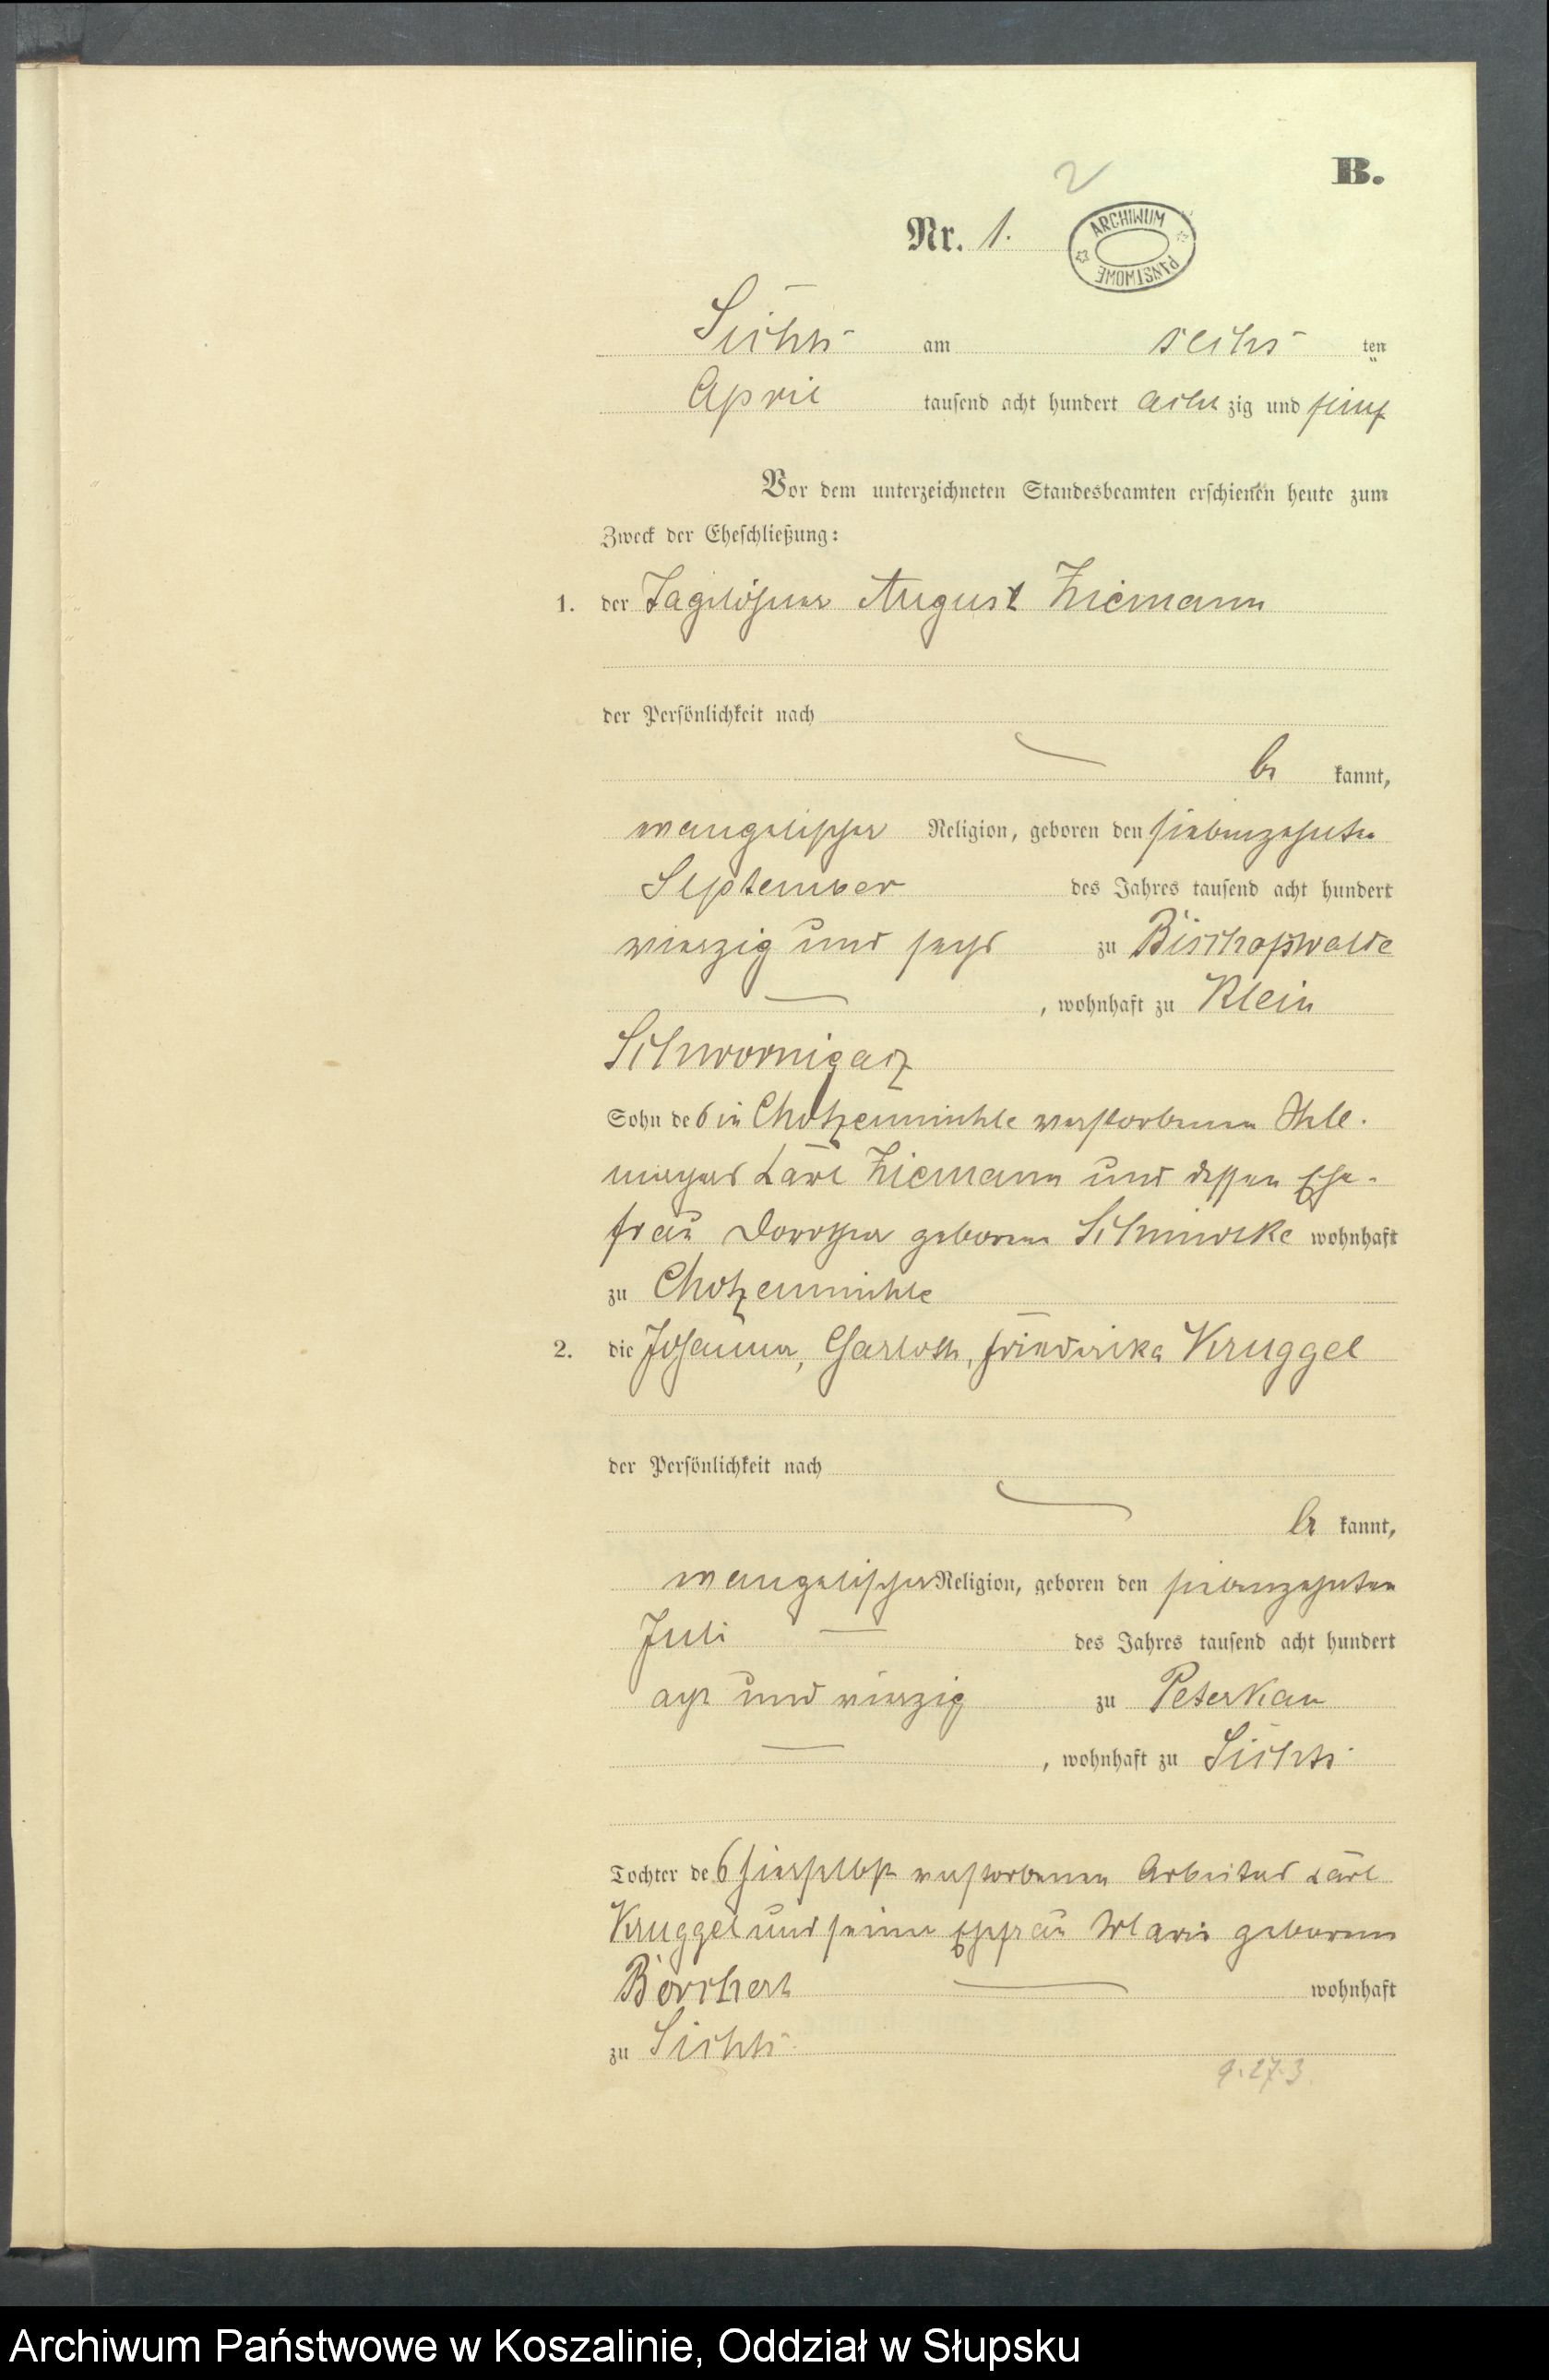 B.
2
Nr. 1.
ARCHIWUM PAŃSTWOWE
Sichts am sechs ten
April tausend acht hundert acht zig und fünf
Vor dem unterzeichneten Standesbeamten erschienen heute zum
Zweck der Eheschließung:
1. der Tagelöhner August Ziemann
der Persönlichkeit nach
be kannt,
evangelischer Religion, geboren den siebenzehnten
September des Jahres tausend acht hundert
vierzig und sechs zu Bischofswalde
, wohnhaft zu Klein
Schwornigatz
Sohn des in Chotzenmühle verstorbenen
Carl Ziemann und dessen Ehe-
frau Dorothea geborene wohnhaft
zu Chotzenmühle
2. die Johanna, Charlotte, Friederika Kruggel
der Persönlichkeit nach
be kannt,
evangelischer Religion, geboren den siebenzehnten
Juli des Jahres tausend acht hundert
acht und vierzig zu Peterkau
, wohnhaft zu Sichts
Tochter des hierselbst verstorbenen Arbeiters Carl
Kruggel und seiner Ehefrau Marie geborene
Borchert wohnhaft
zu Sichts
9.27.3.
Archiwum Państwowe w Koszalinie, Oddział w Słupsku